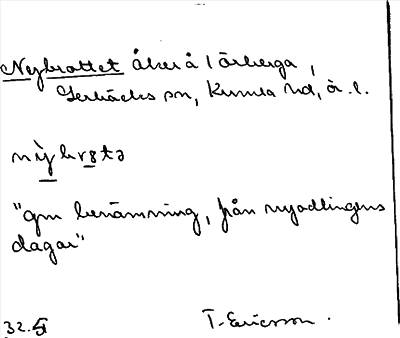 Nybrottet åker å Törberga,
Lerbäcks sn, Kumla hd, ör. l.
nỳbrɔtə
"gm benämning, från nyodlingens
dagar"
32. T. Ericsson.